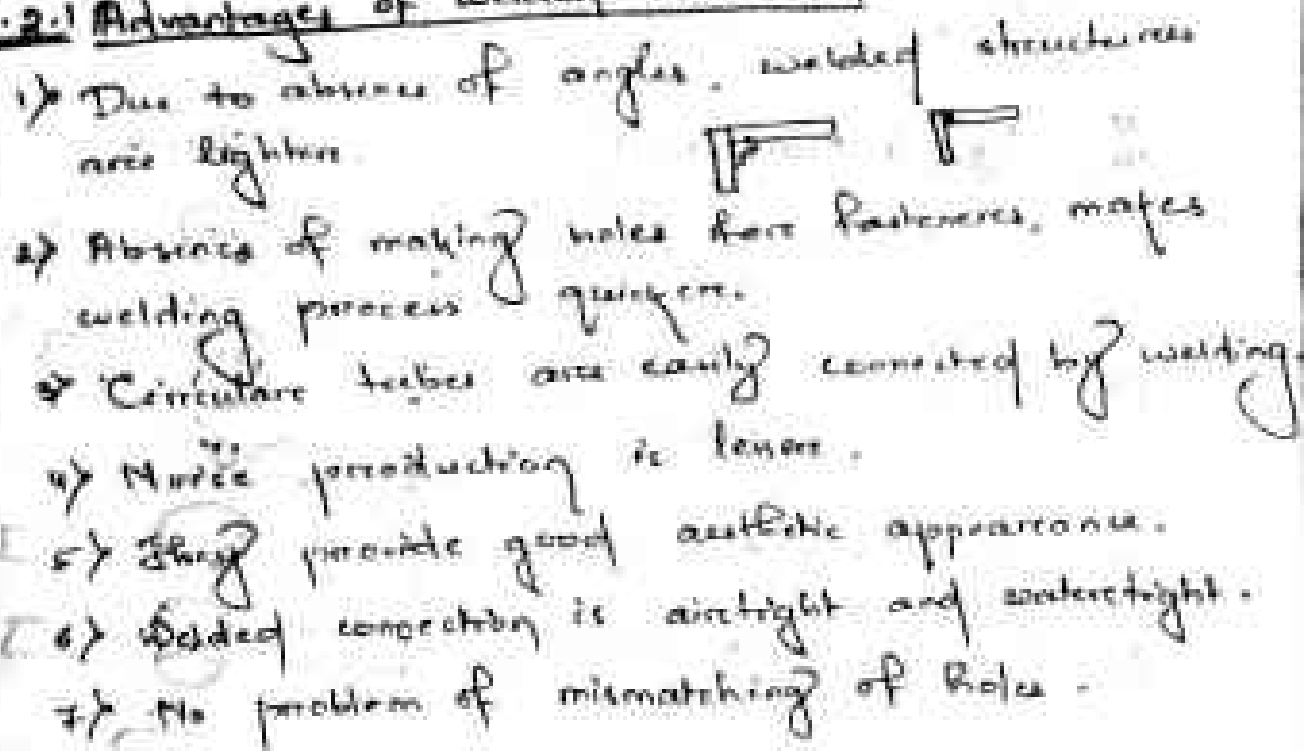 .2.1 Advantages of Welding
1) Due to absence of angles, welded structures
are lighter
2) Absence of making holes for fasteners, makes
welding process quicker.
3) Circular tubes are easily connected by welding.
4) Noise production is lesser.
5) They provide good aesthetic appearance.
6) Welded connection is airtight and watertight.
7) No problem of mismatching of holes.